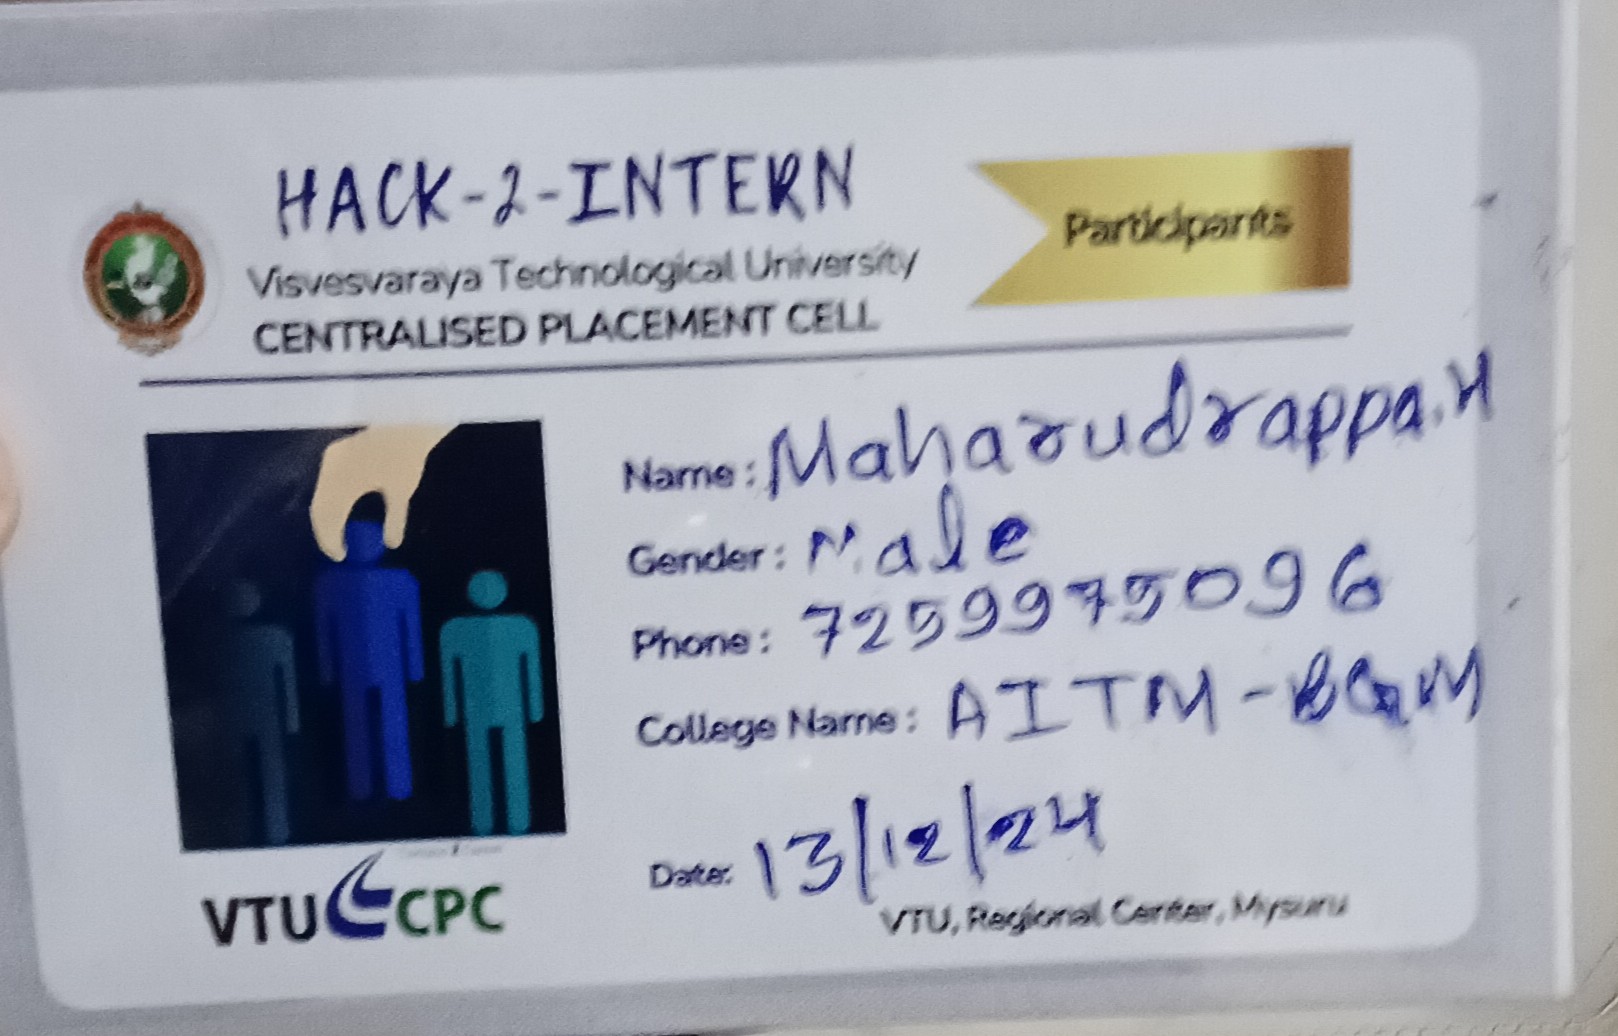 HACK-2-INTERN
Visvesvaraya Technological University
CENTRALISED PLACEMENT CELL
Participants
Name: Maharudrappa.H
Gender: Male
Phone: 7259975096
College Name: AITM-BGM
Date: 13/12/24
VTU CPC
VTU, Regional Center, Mysuru